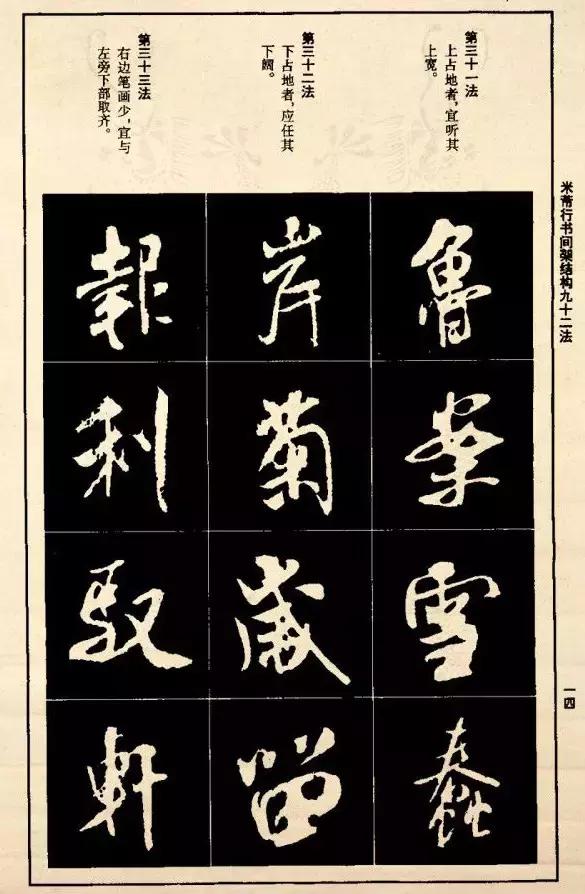 米芾行书间架结构九十二法
第三十一法
上占地者，宜听其
上宽。
魯
案
雪
蠢
第三十二法
下占地者，应任其
下阔。
岸
菊
歲
留
第三十三法
右边笔画少，宜与
左旁下部取齐。
報
利
馭
軒
一四